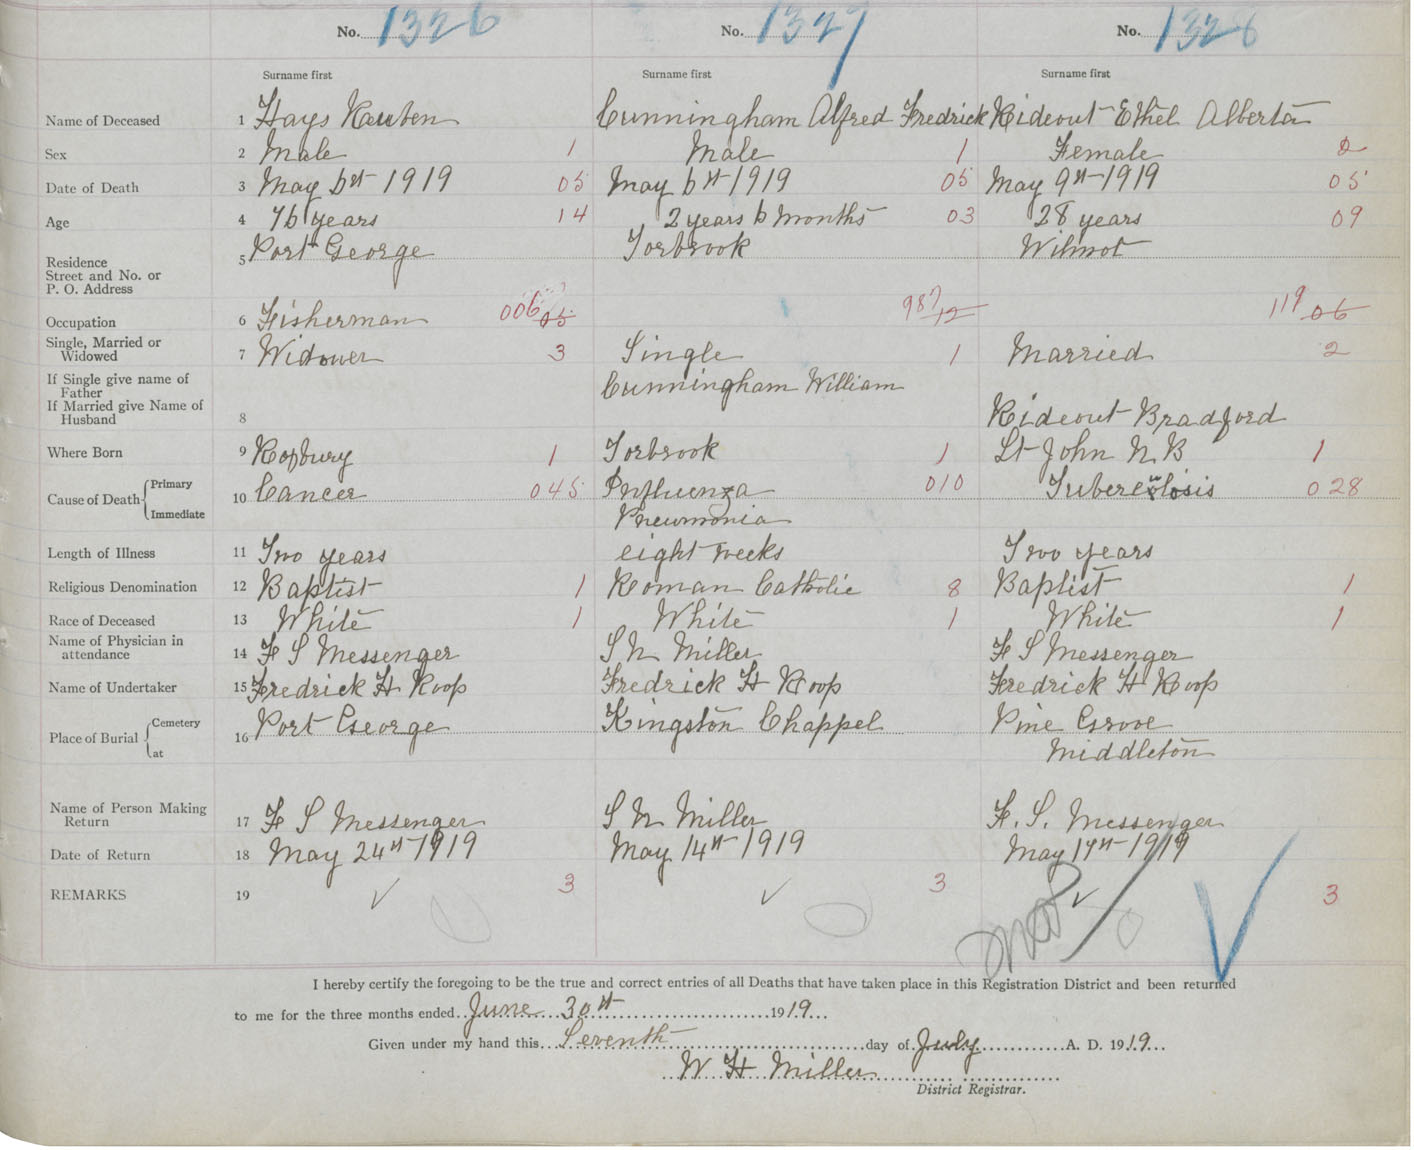 No. 1326 No. 1327 No. 1328
Surname first Surname first Surname first
Name of Deceased 1 Hays Reuben Cunningham Alfred Fredrick Rideout Ethel Alberta
Sex 2 Male 1 Male 1 Female 2
Date of Death 3 May 6th 1919 05 May 6th 1919 05 May 9th 1919 05
Age 4 76 years 14 2 years 6 months 03 28 years 09
Residence
Street and No. or
P. O. Address
5 Port George Torbrook Wilmot
Occupation 6 Fisherman 006 05 987 12 119 06
Single, Married or
Widowed
7 Widower 3 Single 1 Married 2
If Single give name of
Father
Cunningham William
If Married give Name of
Husband
8 Rideout Bradford
Where Born 9 Roxbury 1 Torbrook 1 St John N.B 1
Cause of Death Primary
Immediate
10 Cancer 045 Influenza 010 Tuberculosis 028
Pneumonia
Length of Illness 11 Two years eight weeks Two years
Religious Denomination 12 Baptist 1 Roman Catholic 8 Baptist 1
Race of Deceased 13 White 1 White 1 White 1
Name of Physician in
attendance
14 F S Messenger S N Miller F S Messenger
Name of Undertaker 15 Fredrick H Roop Fredrick H Roop Fredrick H Roop
Place of Burial Cemetery
at
16 Port George Kingston Chappel Pine Grove
Middleton
Name of Person Making
Return
17 F S Messenger S N Miller F. S. Messenger
Date of Return 18 May 24th 1919 May 14th 1919 May 17th 1919
REMARKS 19 3 3 3
I hereby certify the foregoing to be the true and correct entries of all Deaths that have taken place in this Registration District and been returned
to me for the three months ended June 30th 1919
Given under my hand this Seventh day of July A. D. 1919
W H Miller
District Registrar.